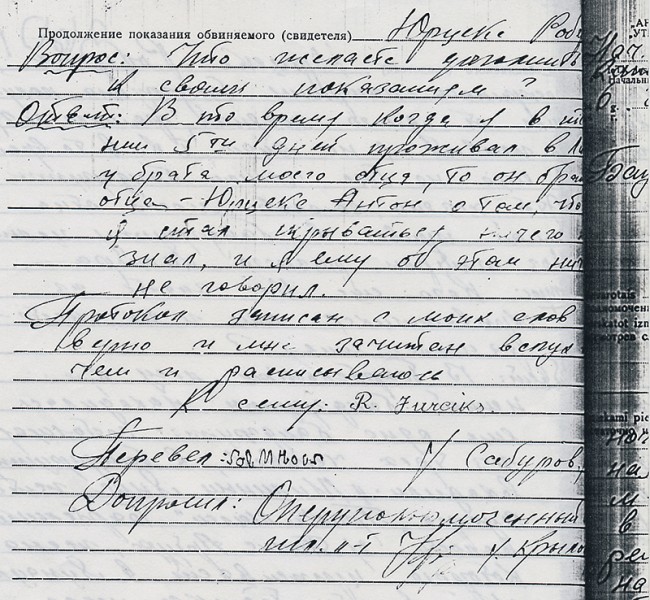 Продолжение показания обвиняемого (свидетеля) Юрцекс Роб
Вопрос: Что желаете дополнить
к своим показаниям?
Ответ: В то время когда я в т
нии 5ти дней проживал в
у брата моего отца, то он брат
отца - Юрцекс Антон о том, что
я стал скрываться ничего
знал, и я ему об этом ни
не говорил.
Протокол записан с моих слов
верно и мне зачитан вслух
чем и расписываюсь
К сему: R. Jurciks.
Перевел: / Сабуров,
Допросил: Оперуполномоченный
/ Крыло